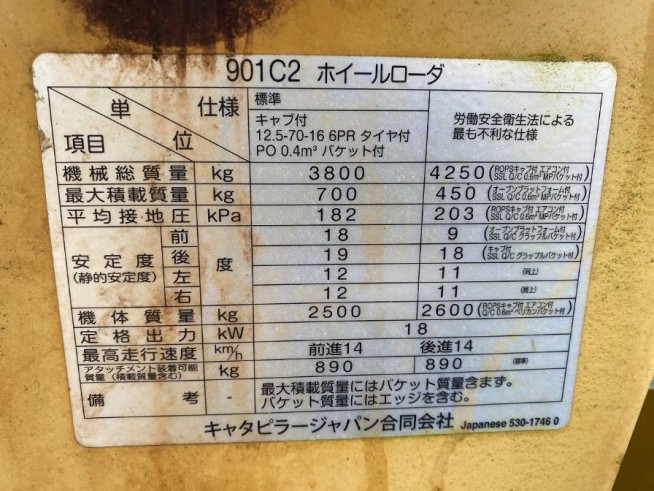 901C2 ホイールローダ
項目 単位 仕様 標準
キャブ付
12.5-70-16 6PR タイヤ付
PO 0.4m³ バケット付
労働安全衛生法による
最も不利な仕様
機械総質量 kg 3800 4250 (ROPSキャブ付 エアコン付 SSL Q/C 0.6m³ MPバケット付)
最大積載質量 kg 700 450 (オープンプラットフォーム付 SSL Q/C 0.6m³ MPバケット付)
平均接地圧 kPa 182 203 (ROPSキャブ付 エアコン付 SSL Q/C 0.6m³ MPバケット付)
安定度 (静的安定度) 度
前 18 9 (オープンプラットフォーム付 SSL Q/C グラップルバケット付)
後 19 18 (キャブ付 SSL Q/C グラップルバケット付)
左 12 11 (同上)
右 12 11 (同上)
機体質量 kg 2500 2600 (ROPSキャブ付 エアコン付 Q/C 0.6m³ ペリカンバケット付)
定格出力 kW 18
最高走行速度 km/h 前進14 後進14
アタッチメント装着可能
質量(積載質量含む) kg 890 890 (標準)
備考 - 最大積載質量にはバケット質量含まず。
バケット容量にはエッジを含む。
キャタピラージャパン合同会社 Japanese 530-1746 0